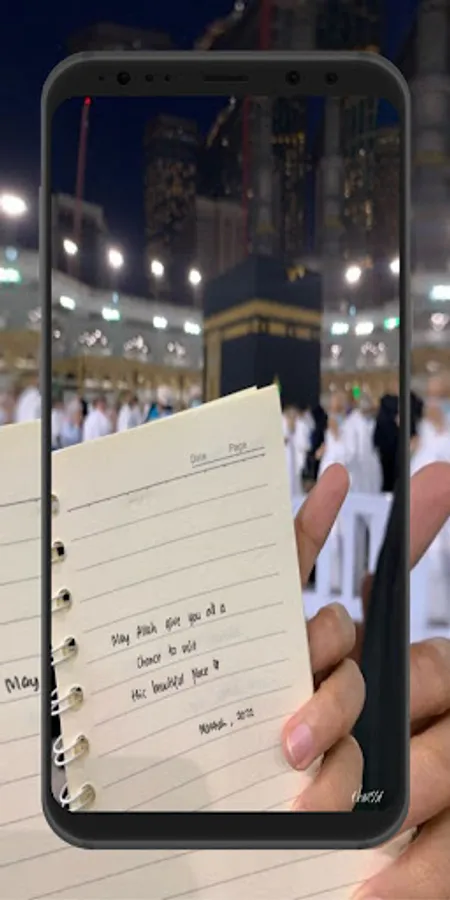 Date Page
May Allah give you all a
Chance to visit
this beautiful place
Makkah, 2022
May